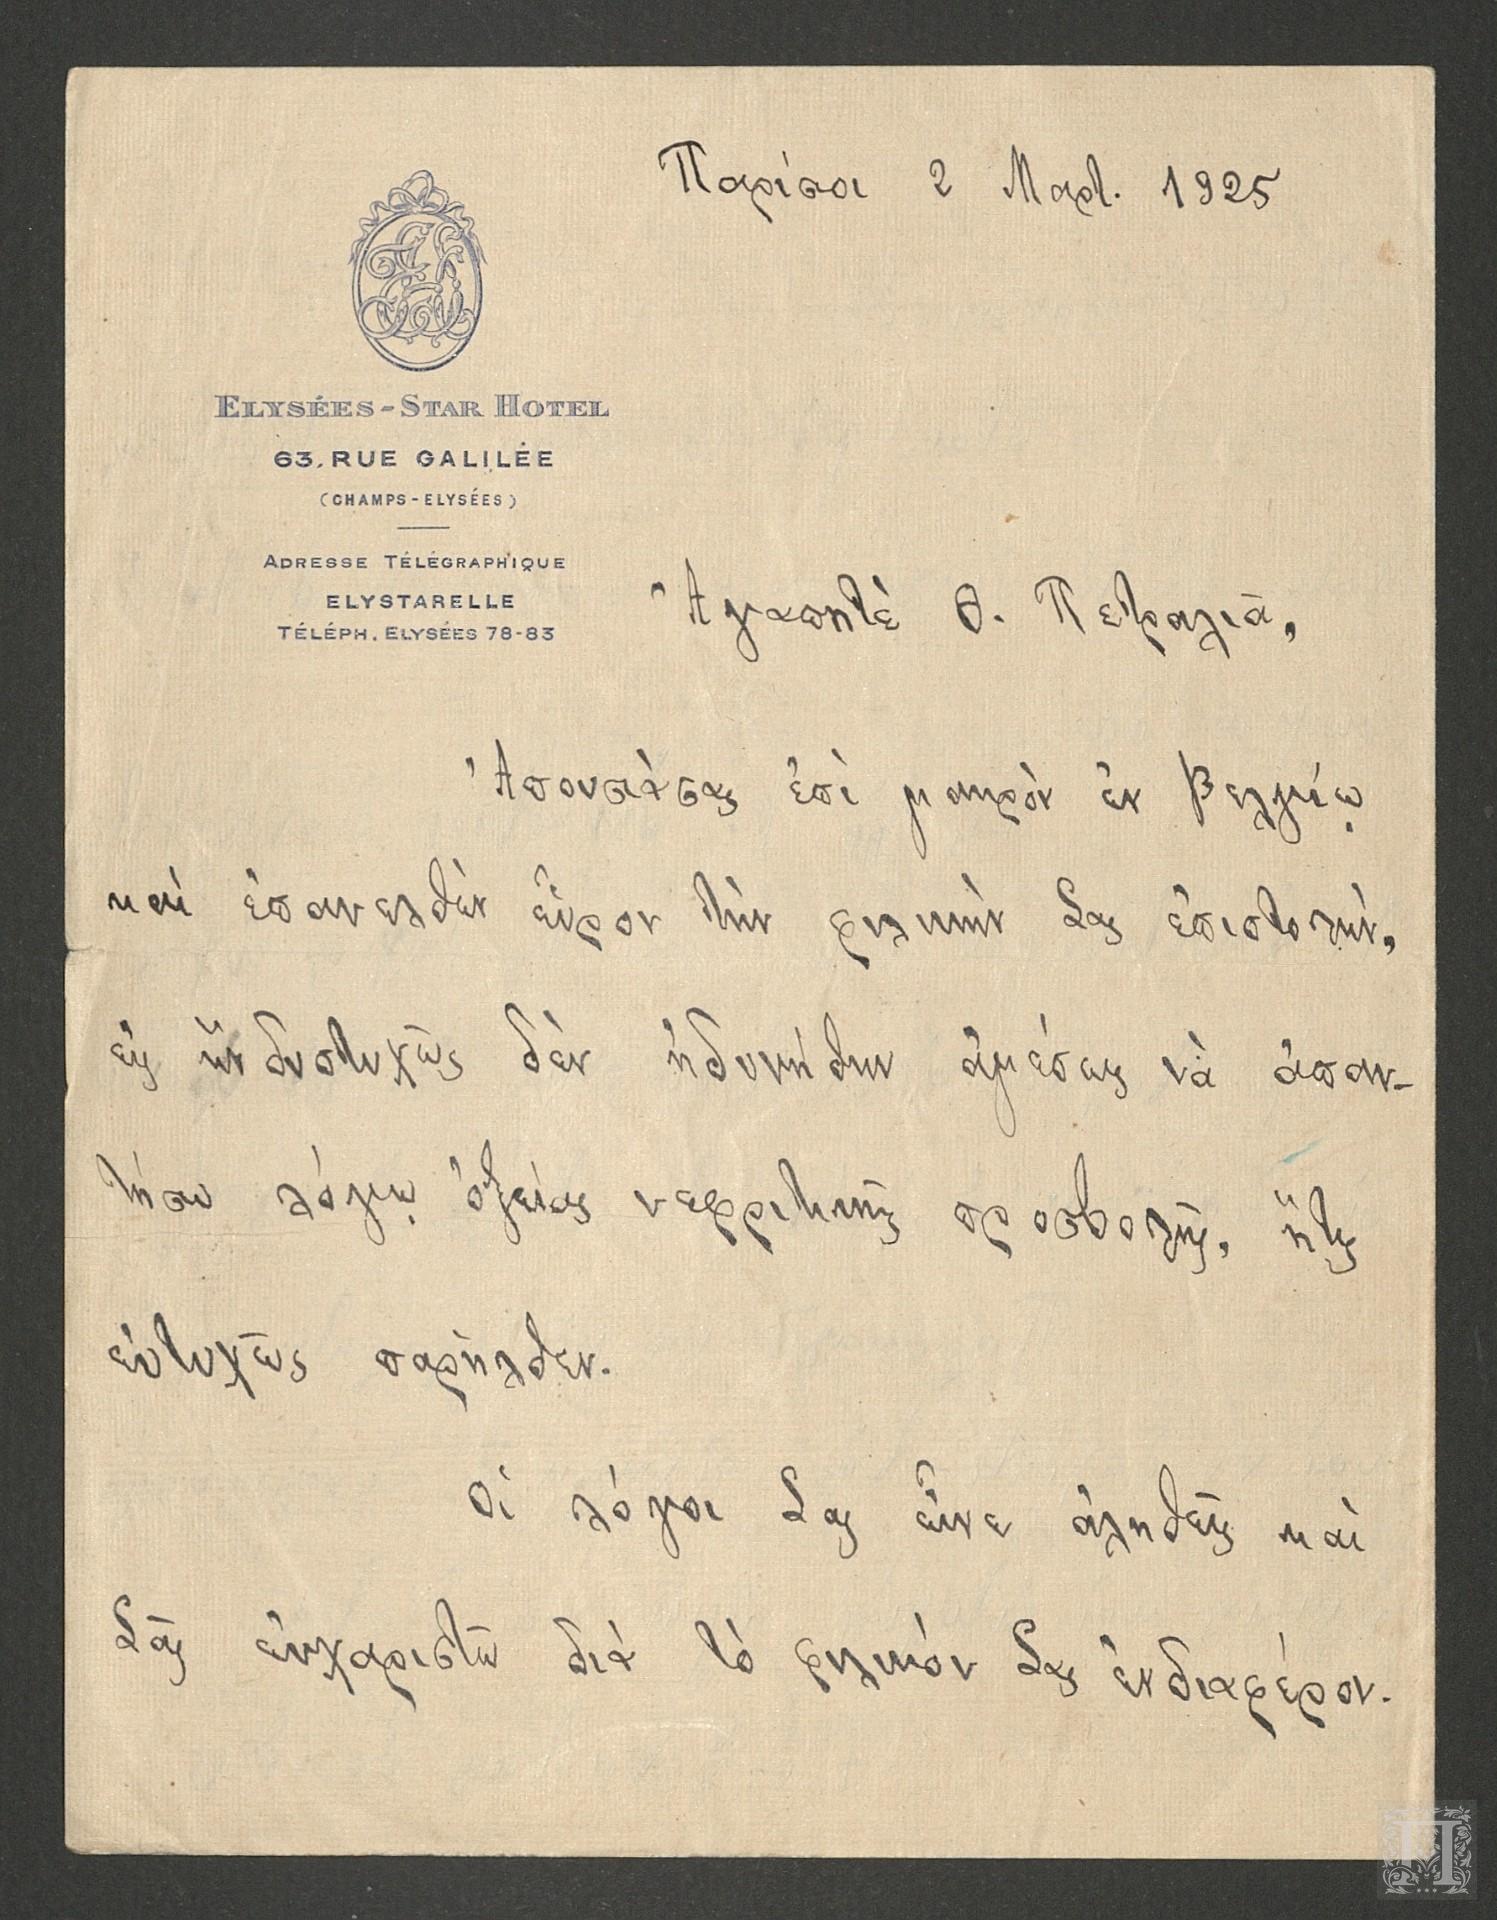 Παρίσοι 2 Μαρτ. 1925
ELYSÉES-STAR HOTEL
63, RUE GALILÉE
(CHAMPS-ELYSÉES)
ADRESSE TÉLÉGRAPHIQUE
ELYSTARELLE
TÉLÉPH. ELYSÉES 78-83
Ἀγαπητὲ Θ. Πετραλιᾶ,
Ἀπουσιάσας ἐπὶ μακρὸν ἐν Βελγίῳ
καὶ ἐπανελθὼν εὗρον τὴν φιλικὴν Σας ἐπιστολὴν,
εἰς ἣν δυστυχῶς δὲν ἠδυνήθην ἀμέσως νὰ ἀπαν-
τήσω λόγῳ ὀξείας νεφριτικῆς προσβολῆς, ἥτις
εὐτυχῶς παρῆλθεν.
Οἱ λόγοι Σας εἶνε ἀληθεῖς καὶ
Σᾶς εὐχαριστῶ διὰ τὸ φιλικόν Σας ἐνδιαφέρον.